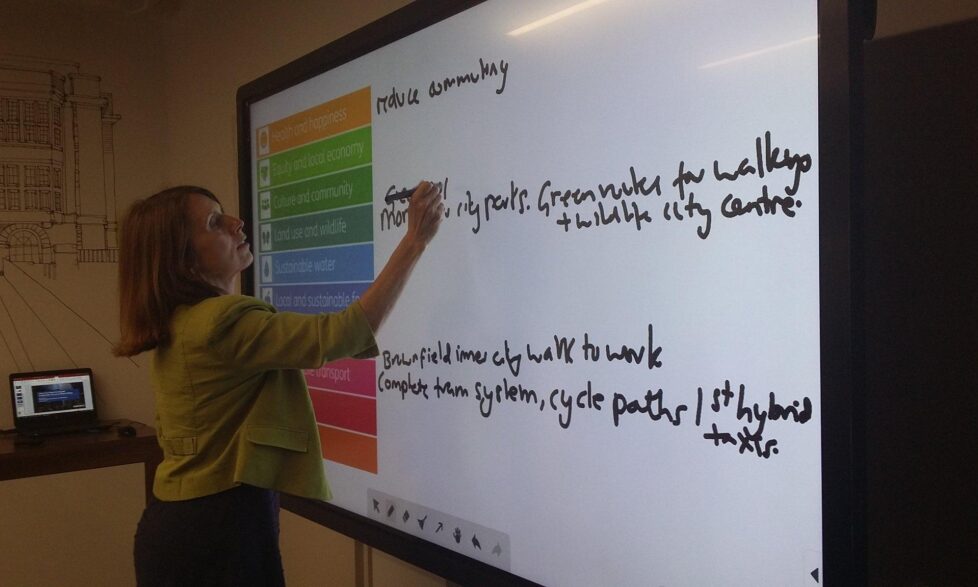 reduce commuting
Health and happiness
Equity and local economy
Culture and community
Land use and wildlife
Sustainable water
Local and sustainable
transport
city parks. Green routes for walkers
+ wildlife city centre.
Brownfield inner city walk to work
Complete tram system, cycle paths / 1st hybrid
taxis.